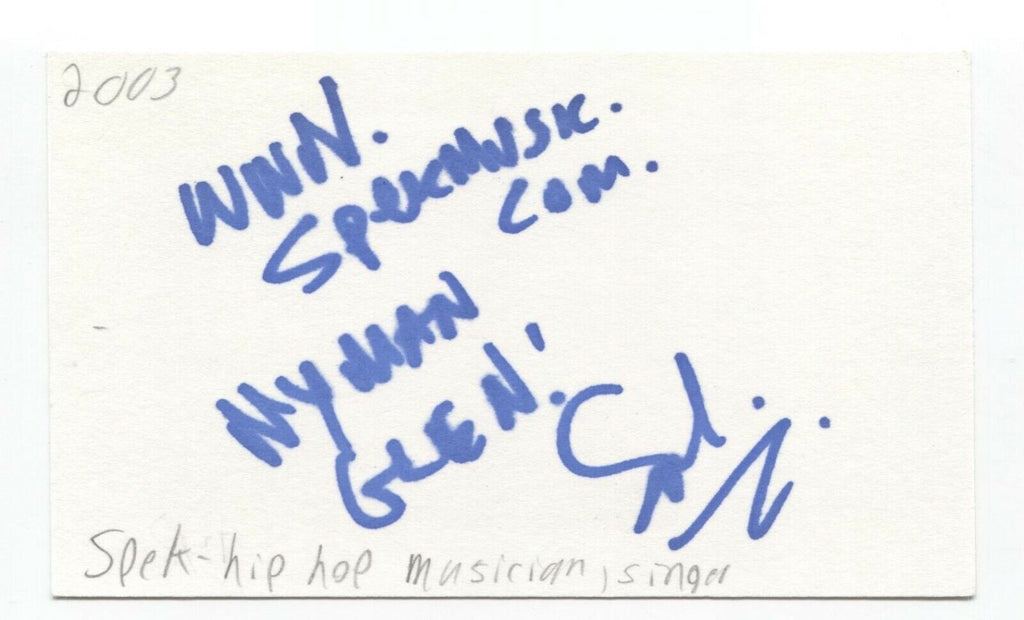 2003
WWW.
SPEKMUSIK.
COM.
MY MAN
GLEN!
Spek - hip hop musician, singer